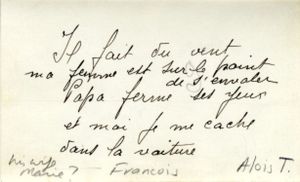 Il fait du vent
ma femme est sur le point
de s'envoler
Papa ferme ses yeux
et moi je me cache
dans la voiture
his wife
Marie? - François
Alois T.